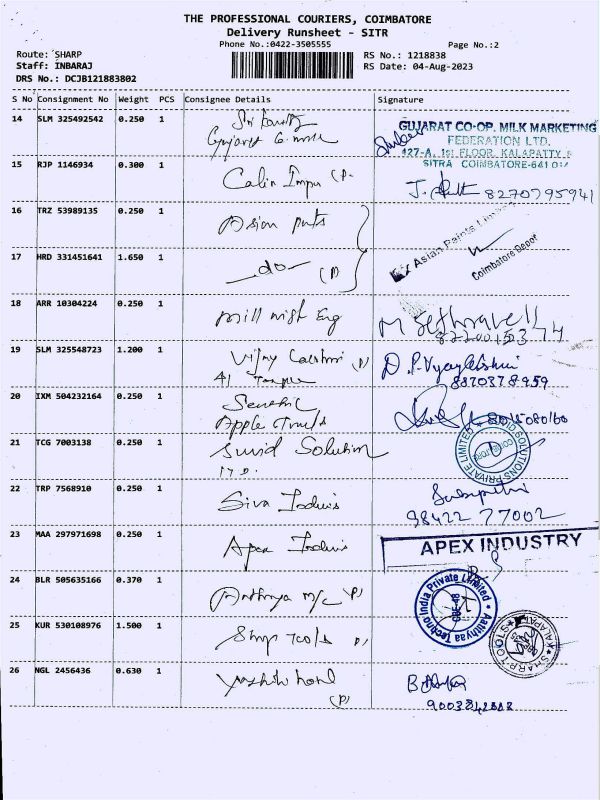 THE PROFESSIONAL COURIERS, COIMBATORE
Delivery Runsheet - SITR
Phone No.:0422-3505555
Page No.:2
Route: SHARP
Staff: INBARAJ
DRS No.: DCJB121883802
RS No.: 1218838
RS Date: 04-Aug-2023
S No Consignment No Weight PCS Consignee Details Signature
14 SLM 325492542 0.250 1
Gujarat
GUJARAT CO-OP. MILK MARKETING
FEDERATION LTD.
427-A, 1st FLOOR, KALAPATTY
SITRA COIMBATORE-641 014
15 RJP 1146934 0.300 1 Calin Impu (P.
8270795941
16 TRZ 53989135 0.250 1 Asion pnts
Asian Paints Limited
Coimbatore Depot
17 HRD 331451641 1.650 1 -do- (P)
18 ARR 10304224 0.250 1 mill mist Eng
M Sethuravel
19 SLM 325548723 1.200 1 Vijay (P)
41
8870378959
20 IXM 504232164 0.250 1 Senthil
Apple
8015080160
21 TCG 7003138 0.250 1 Suvid Solution
17 D.
SOLUTIONS PRIVATE LIMITED
22 TRP 7568910 0.250 1 Siva Industris
98422 77002
23 MAA 297971698 0.250 1 Apex Industris
APEX INDUSTRY
24 BLR 505635166 0.370 1 m/c (P)
Aathityaa Techno India Private Limited
CBE-48
25 KUR 530108976 1.500 1 Sharp Tools P)
SHARP TOOLS
KALAPATTI
26 NGL 2456436 0.630 1
(P)